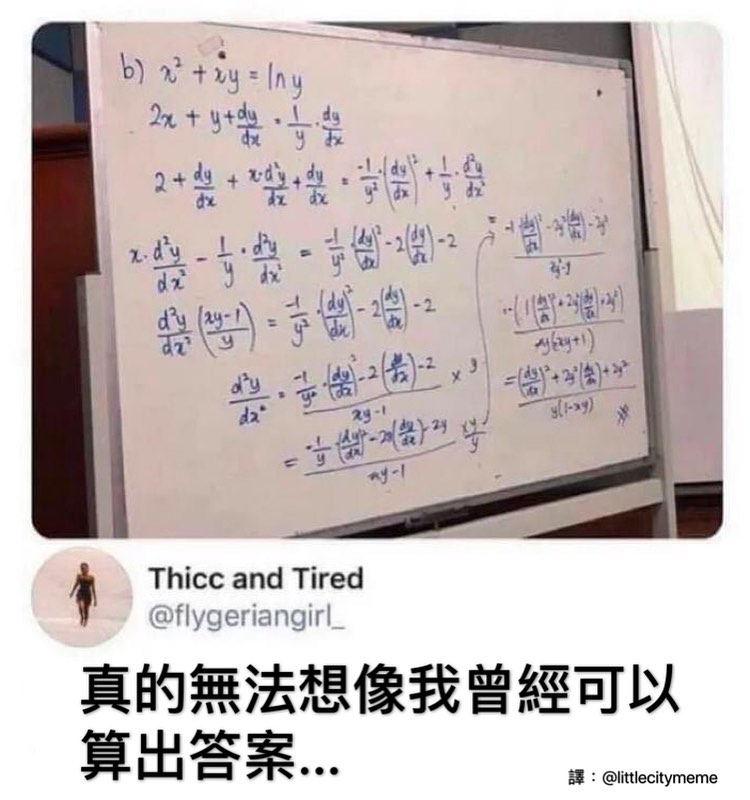 b) x² + xy = ln y
2x + y + dy/dx = 1/y · dy/dx
2 + dy/dx + x·d²y/dx + dy/dx = -1/y² · (dy/dx)² + 1/y · d²y/dx²
x · d²y/dx² - 1/y · d²y/dx² = -1/y² · (dy/dx)² - 2(dy/dx) - 2
d²y/dx² (xy-1/y) = -1/y² · (dy/dx)² - 2(dy/dx) - 2
d²y/dx² = -1/y² · (dy/dx)² - 2(dy/dx) - 2 / xy-1 × y
= -1/y · (dy/dx)² - 2y(dy/dx) - 2y / xy-1 × y/y
= -1(dy/dx)² - 2y²(dy/dx) - 2y²
(1(dy/dx)² + 2y²(dy/dx) + 2y²)
= (dy/dx)² + 2y²(dy/dx) + 2y² / y(1-xy)
Thicc and Tired
@flygeriangirl_
真的無法想像我曾經可以
算出答案...
譯：@littlecitymeme